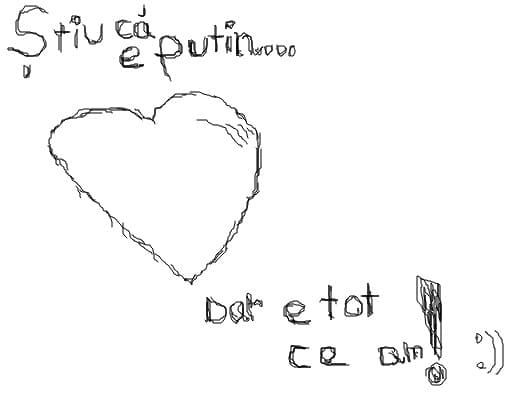 Știu că
e putin....
Dar e tot
ce am! :))